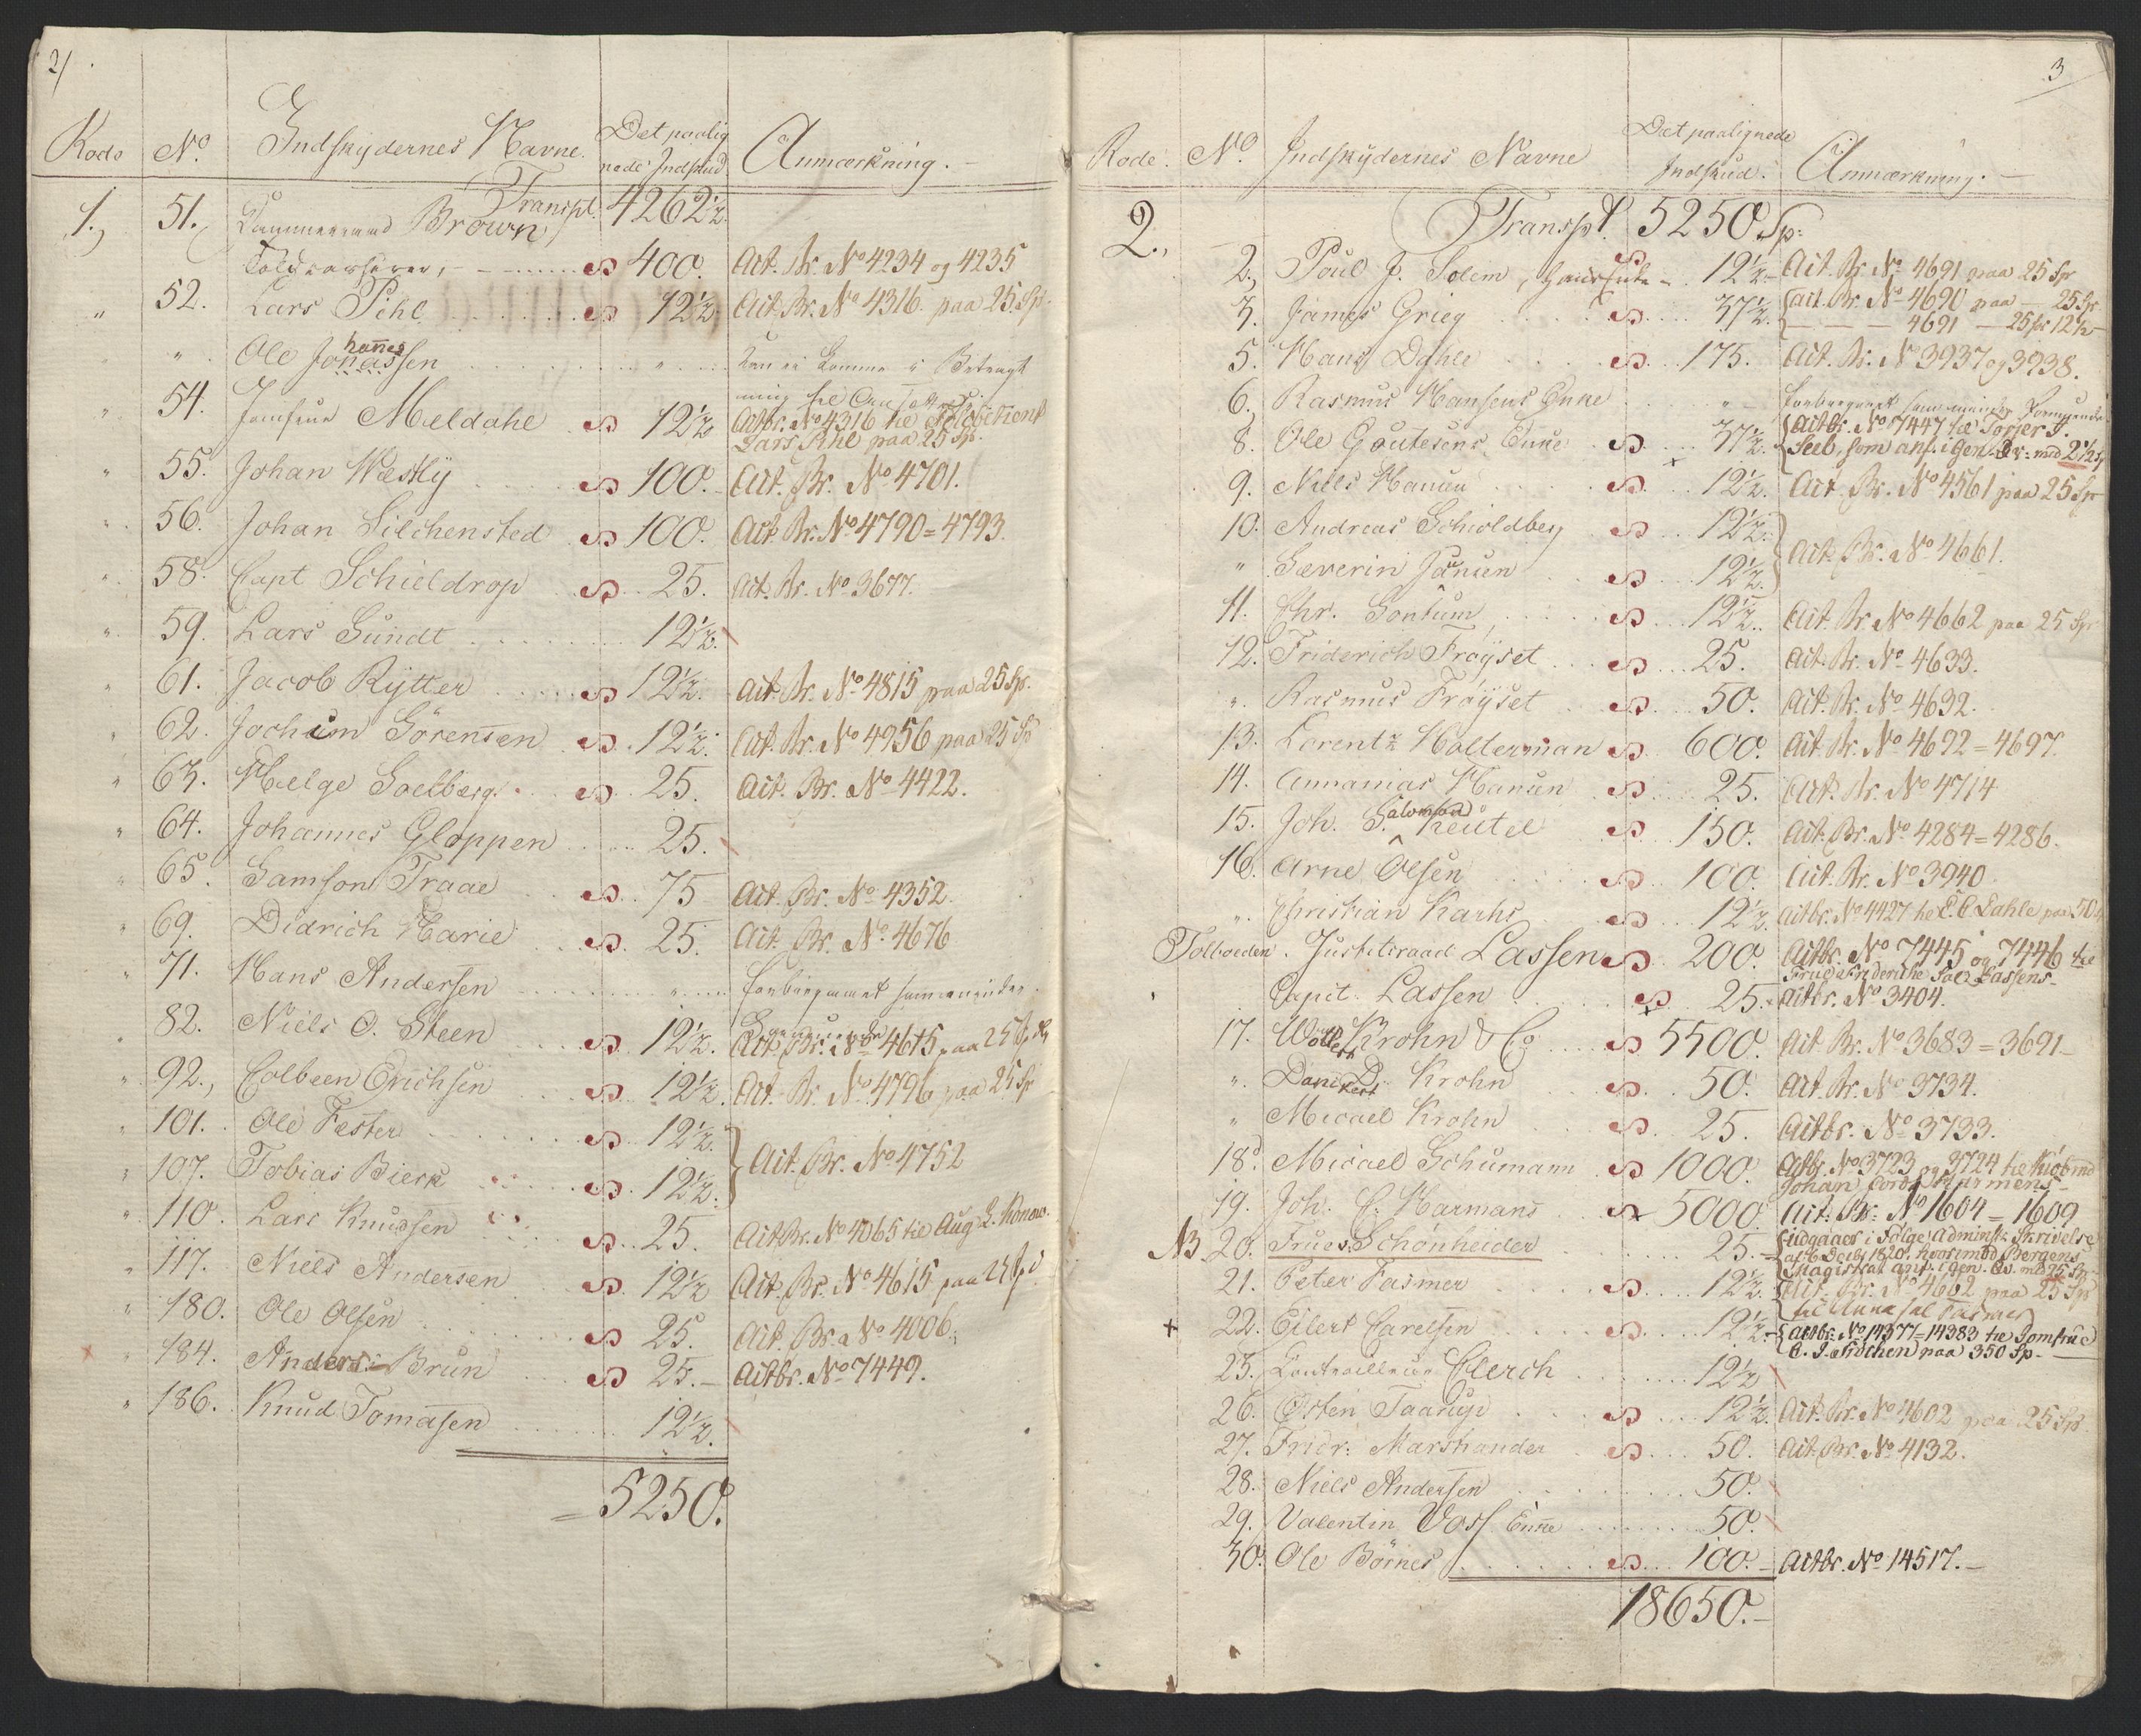 2/
Rode No. Indskydernes Navne. Det paalig
nede Indskud. Anmærkning.
Transpt. 4262½
1., 51. Kammerraad Brown
Toldkasserer, 400. Act. Br. No 4234 og 4235
" 52. Lars Pihl 12½ Act. Br. No 4316. paa 25. Sp.
" Ole Johannessen " Kan ei komme i Betragt
ning
" 54. Jomfrue Meldahl 12½ Actbr. No 4316 til
Lars Pihl paa 25 Sp.
" 55. Johan Westly 100. Act. Br. No 4701.
" 56. Johan Silchensted 100. Act. Br. No 4790=4793.
" 58. Capt Schieldrop 25. Act. Br. No 3677.
" 59. Lars Sundt 12½.
" 61. Jacob Rytter 12½. Act. Br. No 4815 paa 25 Sp.
" 62. Jochum Sörensen 12½. Act. Br. No 4956 paa 25 Sp
" 63. Helge Soelberg. 25. Act. Br. No 4422.
" 64. Johannes Gloppen 25.
" 65. Samson Traae 75 Act. Br. No 4352.
" 69. Didrich Harie 25. Act. Br. No 4676
" 71. Hans Andersen "
" 82. Niels O. Steen 12½. Act. Br. No 4615 paa 25 Sp
" 92., Colbeen Erichsen 12½. Act. Br. No 4796 paa 25 Sp
" 101. Ole Fester 12½.
" 107. Tobias Bierk 12½. Act. Br. No 4752
" 110. Lars Knudsen 25. Act Br. No 4065 til Aug. L. Konow.
" 117. Niels Andersen 12½ Act. Br. No 4615 paa 25 Sp
" 180. Ole Olsen 25. Act. Br. No 4006.
" 184. Anders Brun 25.- Actbr. No 7449.
" 186. Knud Tomasen 12½.
= 5250.
3
Rode. No. Indskydernes Navne Det paalignede
Indskud. Anmærkning.
2., Transpt. 5250 Sp.
2., Poul J. Solem, 12½.- Act. Br. No 4691 paa 25 Sp
3. James Grieg 37½. Act. Br. No 4690 paa — 25 Sp.
— — — 4691 — 25 Sp 12½
5. Hans Dahle 175. Act. Br. No 3937 og 3938.
6. Rasmus Hansens Enke "
8. Ole Goutesens Enke 37½. Actbr. No 7447 til Torjer J.
Seel, som anf. i Gen. Qv: med 2½ Sp
9. Niels Hansen 12½. Act. Br. No 4561 paa 25 Sp
10. Andreas Schioldberg 12½.
" Severin Jansen 12½. Act. Br. No 4661.
11. Chr. Sontum 12½. Act. Br No 4662 paa 25 Sp
12. Friderich Tröyset 25. Act. Br. No 4633.
" Rasmus Tröyset 50. Act. Br. No 4632.
13. Lorentz Holterman 600. Act. Br. No 4692=4697.
14. Annanias Hansen 25. Act. Br. No 4714
15. Joh. Salomon Keutel 150. Act. Br. No 4284=4286.
16. Arne Olsen 100. Act. Br. No 3940
" Christian Karhs 12½. Actbr. No 4427 til E. C. Dahle paa 50
Tolboeden. Justitsraad Lassen 200. Actbr. No 7445 og 7446 til
Frue Frideriche Sal. Lassens
Capit. Lassen 25. Actbr. No 3404.
17. Wollert Krohn & Co 5500. Act. Br. No 3683=3691
" Danckert D. Krohn 50. Act. Br. No 3734.
" Micael Krohn 25. Actbr. No 3733.
18. Micael Schumann 1000. Actbr. No 3723 og 3724 til Kiöbmd
Johan Cord Harmens
19. Joh. C. Harmans 5000. Act. Br. No 1604=1609
NB 20. Frue Schönheider 25. udgaaer i Fölge Adminst. Skrivelse
af 6 Decbr 1820, hvorimod Bergens
Magistrat anf. i Gen. Qv. md 25 Sp.
21. Peter Fasmer 12½. Act. Br. No 4662 paa 25 Sp
til Anna sal Fasmer
+ 22. Eilert Carelsen 12½. Actbr. No 14377=14383 til Jomfrue
C. J. Fridchen paa 350 Sp.
23. Controlleur Clerch 12½
26. Osten Taarup 12½. Act. Br. No 4602 paa 25 Sp.
27. Fridr: Marshander 50. Act. Br. No 4132.
28. Niels Andersen 50.
29. Valentin Voss Enke 50.
30. Ole Börnes 100.- Actbr. No 14517.-
18650.-